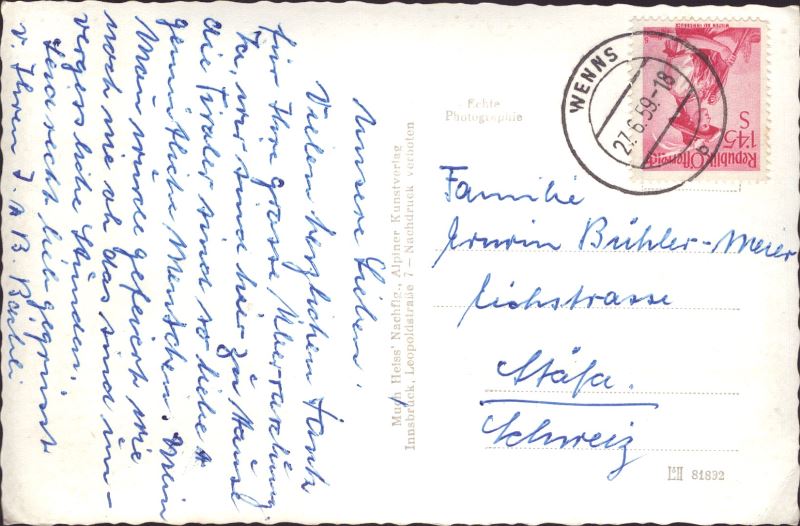 Unsere Lieben!
Vielen herzlichen Dank
für Ihre grosse Überraschung.
Ja, wir sind hier zu Hause
die Tiroler sind so liebe +
gemütliche Menschen. Mein
Mann wurde gefeiert wie
noch nie ob das sind un-
vergessliche Stunden.
Seid recht lieb gegrüsst
v. Ihren J. + B.
Much Heiss' Nachflg., Alpiner Kunstverlag
Innsbruck, Leopoldstraße 7 – Nachdruck verboten
Echte
Photographie
WENNS
27.6.59.-18
b
Republik Österreich
1'45
S
Familie
Erwin Bühler-Meier
Eichstrasse
Stäfa.
Schweiz
81892